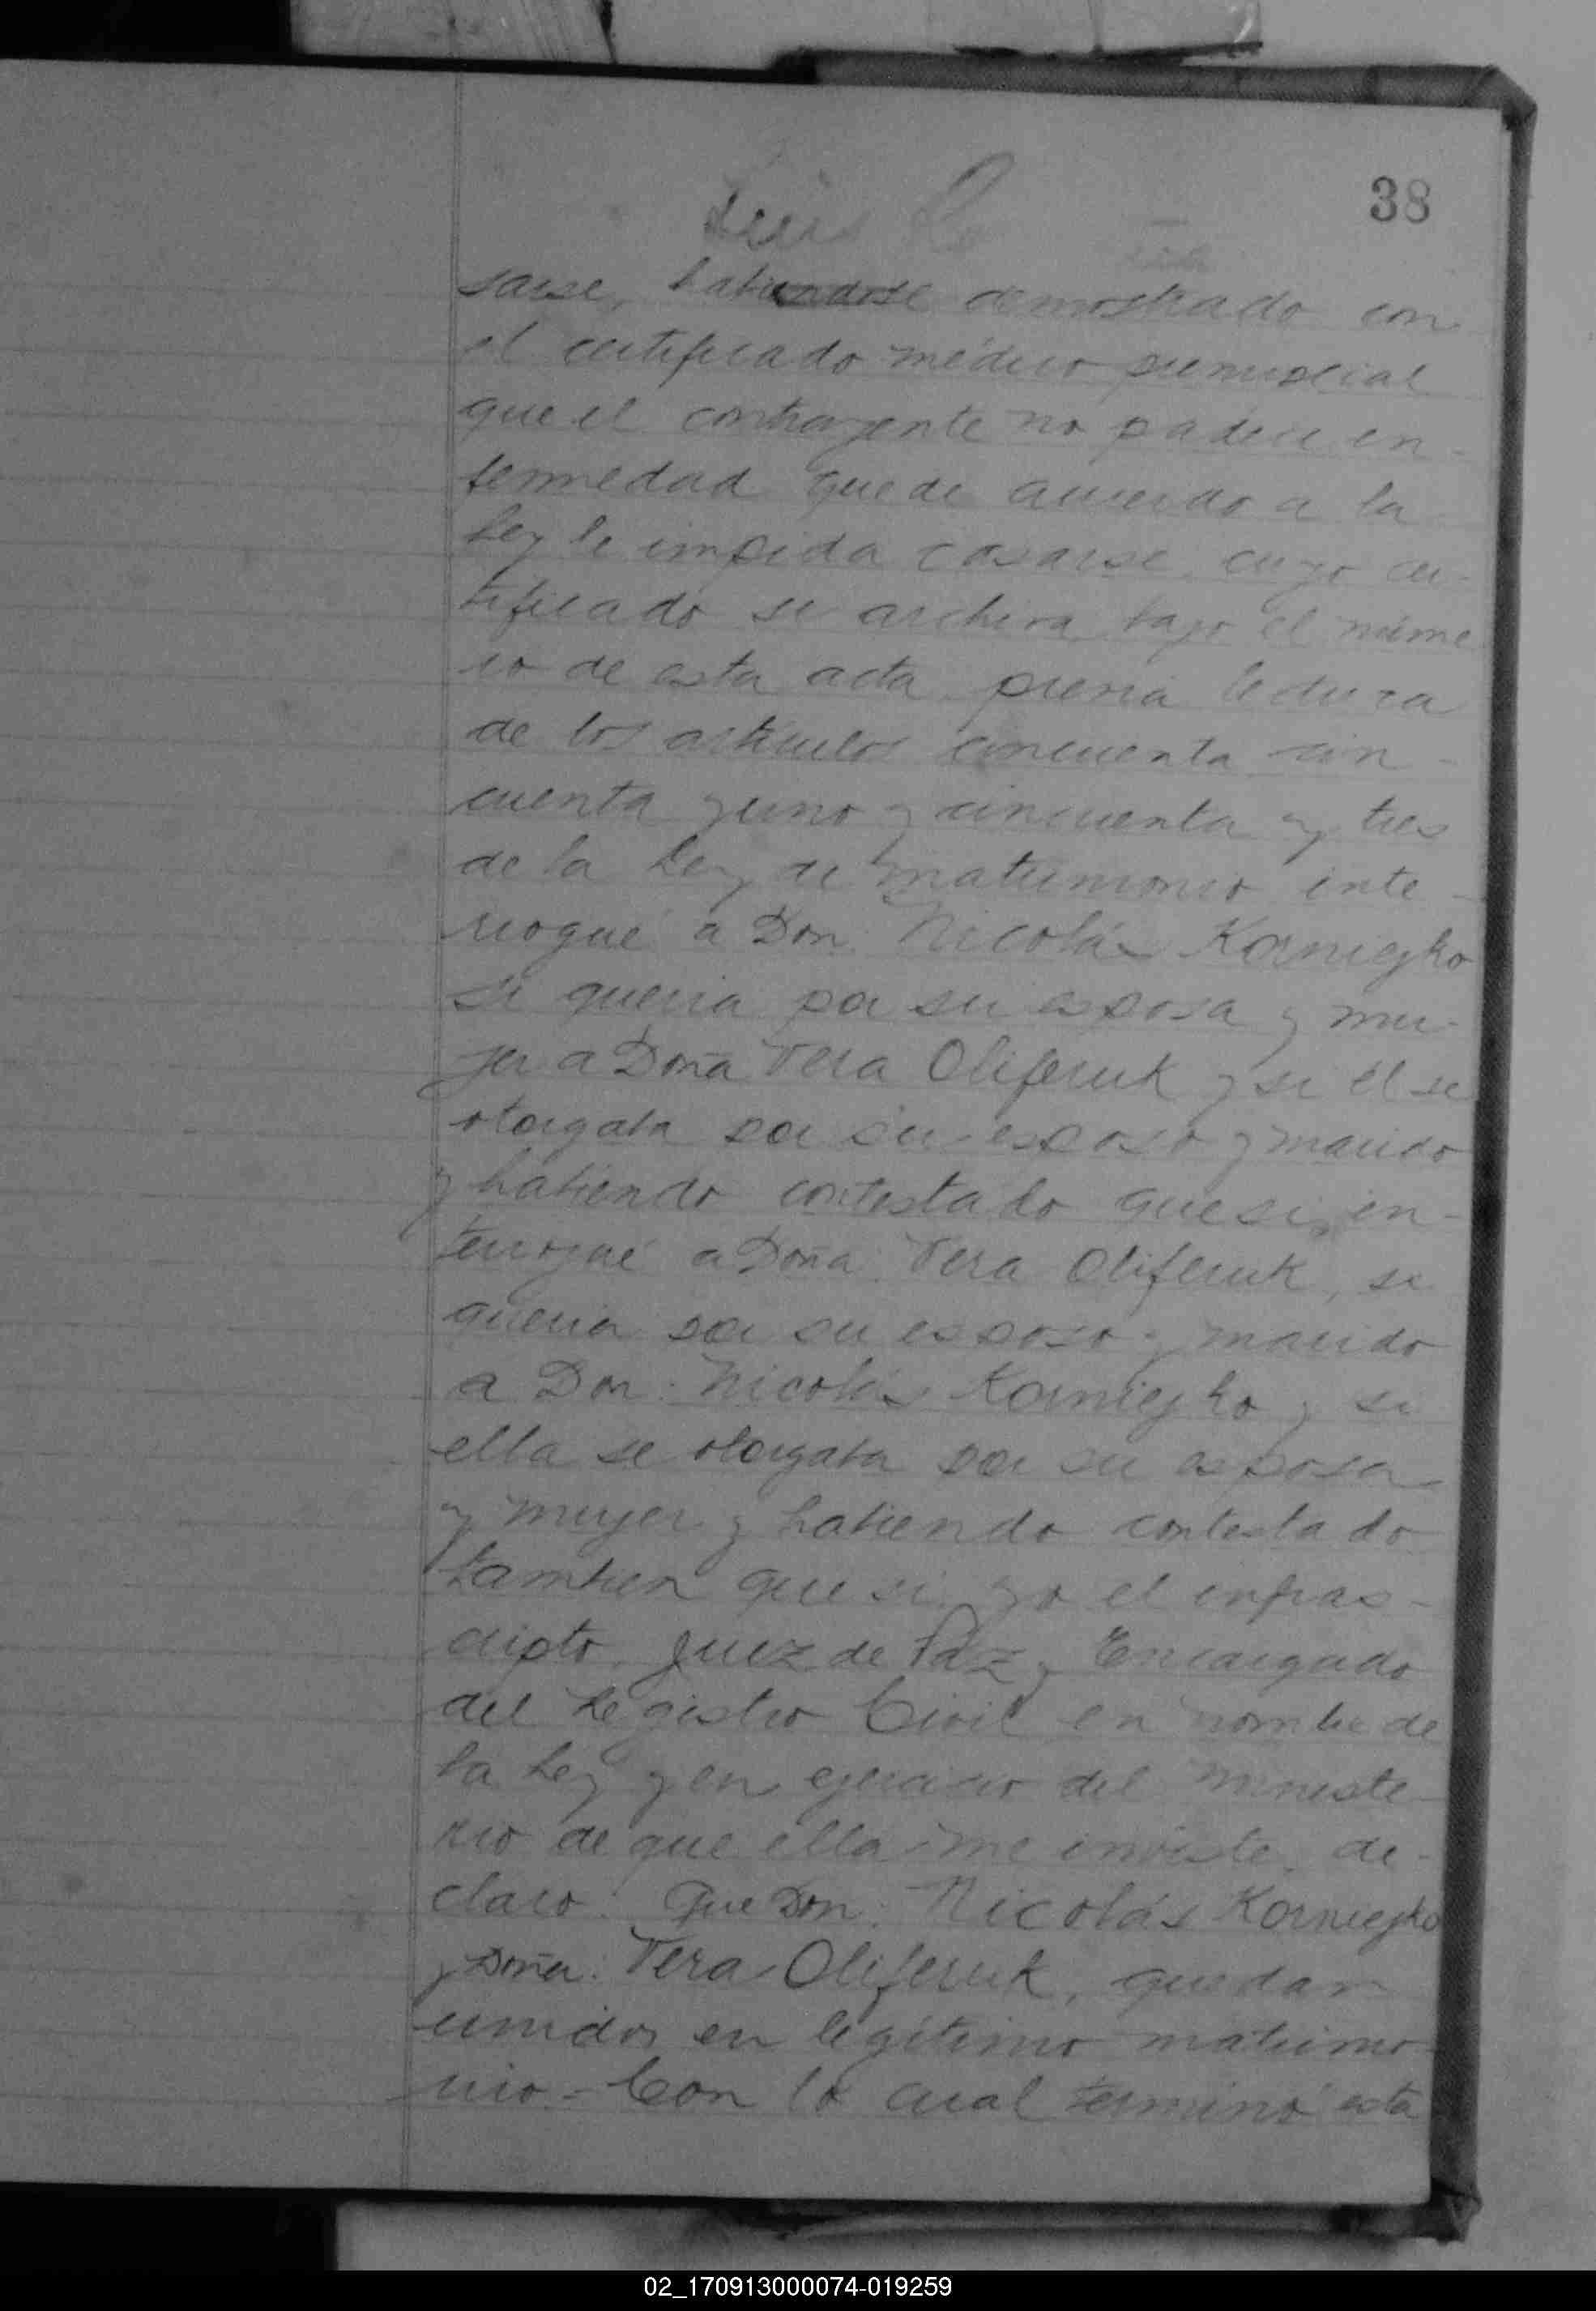 38
Luis
sarse, habiendose demostrado con
el certificado médico prenupcial
que el contrayente no padece en-
fermedad que de acuerdo a la
Ley le impida casarse, cuyo cer-
tificado se archiva bajo el núme
ro de esta acta previa lectura
de los artículos cincuenta cin-
cuenta y uno y cincuenta y tres
de la Ley de matrimonio inte-
rrogué a Don: Nicolás Korniejko
si queria por su esposa y mu-
jer a Doña Vera Oliferuk y si él se
otorgaba por su esposo y marido
y habiendo contestado que si, in-
terrogué a Doña: Vera Oliferuk, si
queria por su esposo y marido
a Don: Nicolás Korniejko y si
ella se otorgaba por su esposa
y mujer y habiendo contestado
tambien que si yo el infras-
cripto Juez de Paz y Encargado
del Registro Civil en nombre de
la Ley y en ejercicio del ministe-
rio de que ella me inviste, de-
claro: Que Don: Nicolás Korniejko
y Doña: Vera Oliferuk, quedan
unidos en legítimo matrimo-
nio - Con lo cual terminó esta
02_170913000074-019259